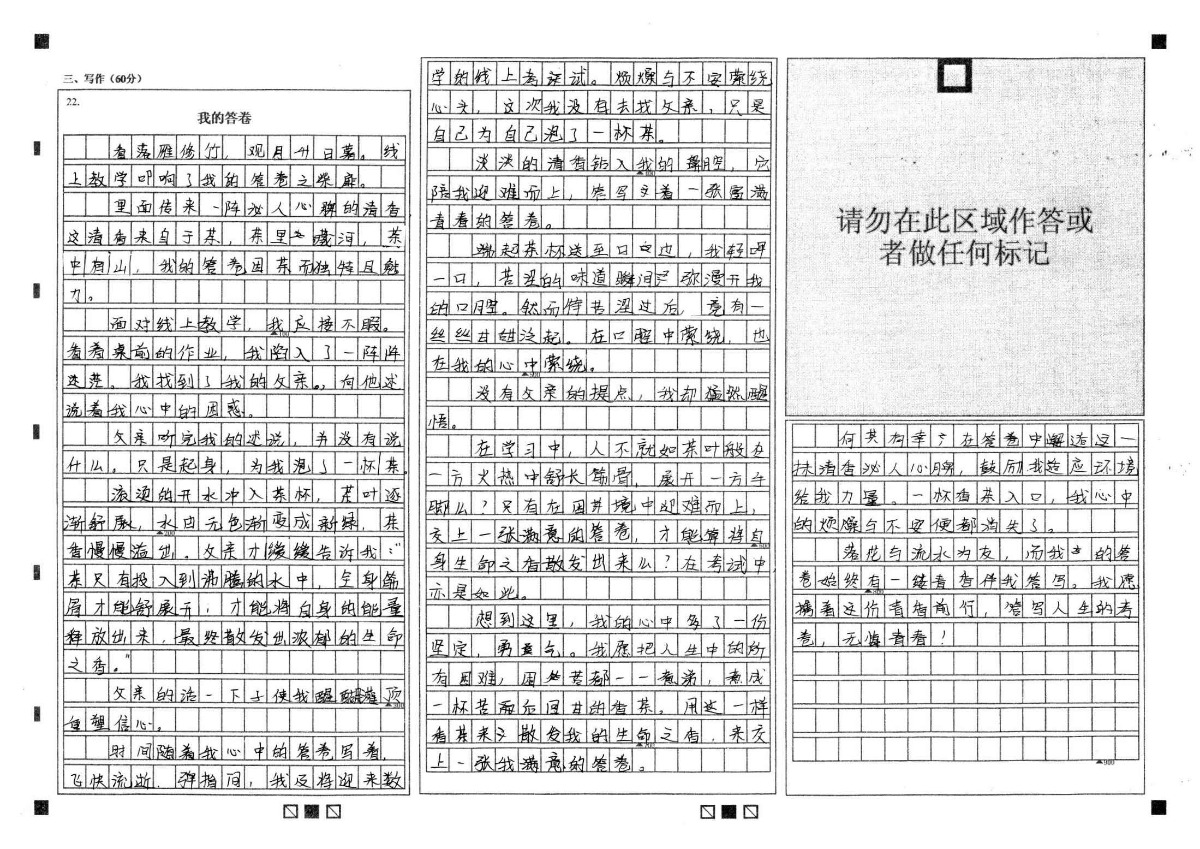 三、写作（60分）
22.
我的答卷
看落雁修竹，观月升日暮。线
上教学叩响了我的答卷之柴扉。
里面传来一阵沁人心脾的清香，
这清香来自于茶，茶里有河，茶
中有山，我的答卷因茶而独特且魅
力。
面对线上教学，我应接不暇。
看着桌前的作业，我陷入了一阵阵
迷茫。我找到了我的父亲，向他述
说着我心中的困惑。
父亲听完我的述说，并没有说
什么。只是起身，为我泡了一杯茶。
滚烫的开水冲入茶杯，茶叶逐
渐舒展，水由无色渐变成新绿，茶
香慢慢溢出。父亲才缓缓告诉我："
茶只有投入到沸腾的水中，全身筋
骨才能舒展开，才能将自身的能量
释放出来，最终散发出浓郁的生命
之香。"
父亲的话一下子使我醍醐灌顶
重塑信心。
时间随着我心中的答卷写着，
飞快流逝．弹指间，我及将迎来数
学的线上考试。烦燥与不安萦绕
心头，这次我没有去找父亲，只是
自己为自己泡了一杯茶。
淡淡的清香钻入我的鼻腔，它
陪我迎难而上，答写着一张富满
青春的答卷。
端起茶杯送至口边，我轻呷
一口，苦涩的味道瞬间弥漫开我
的口腔。然而待苦涩过后，竟有一
丝丝甘甜泛起。在口腔中萦绕，也
在我的心中萦绕。
没有父亲的提点，我却猛然醒
悟。
在学习中，人不就如茶叶般在
一方火热中舒长筋骨，展开一方手
脚么？只有在困境中迎难而上，
交上一张满意的答卷，才能算将自
身生命之香散发出来么？在考试中，
亦是如此。
想到这里，我的心中多了一份
坚定，勇气。我愿把人生中的所
有困难，困苦都一一煮沸，煮成
一杯苦而后回甘的香茶。用这一样
看其来散发我的生命之香，来交
上一张我满意的答卷。
请勿在此区域作答或
者做任何标记
何其有幸，在答卷中邂逅这一
抹清香沁人心脾，鼓励我适应环境
给我力量。一杯香茶入口，我心中
的烦燥与不安便都消失了。
落花与流水为友，而我的答
卷始终有一缕清香伴我答写。我愿
携着这份清香前行，答写人生的考
卷，无悔青春！